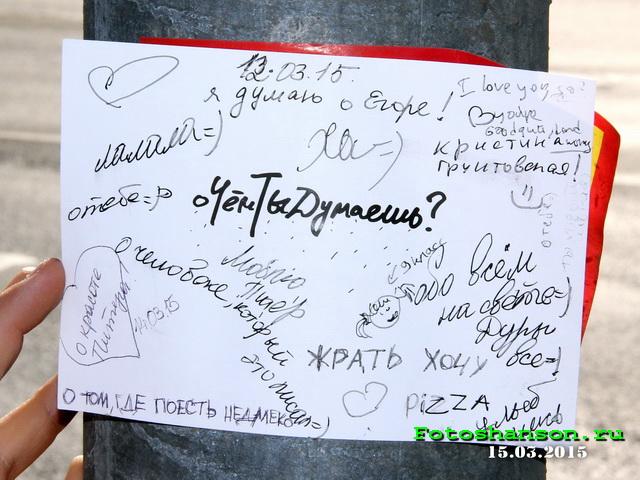 13.03.15.
я думаю о Егоре!
I love you
Good girl, and
кристина
грунтовская!
лалала=)
ХА=)
о тебе=Р
оЧёмТыДумаешь?
о человеке, который
это писал=)
Люблю
Питер
обо всём
на свете=)
Дуры
все=)
о красоте
Питера!
14.03.15
ЖРАТЬ ХОЧУ
PiZZA
О ТОМ, ГДЕ ПОЕСТЬ НЕДАЛЕКО
Fotoshanson.ru
15.03.2015